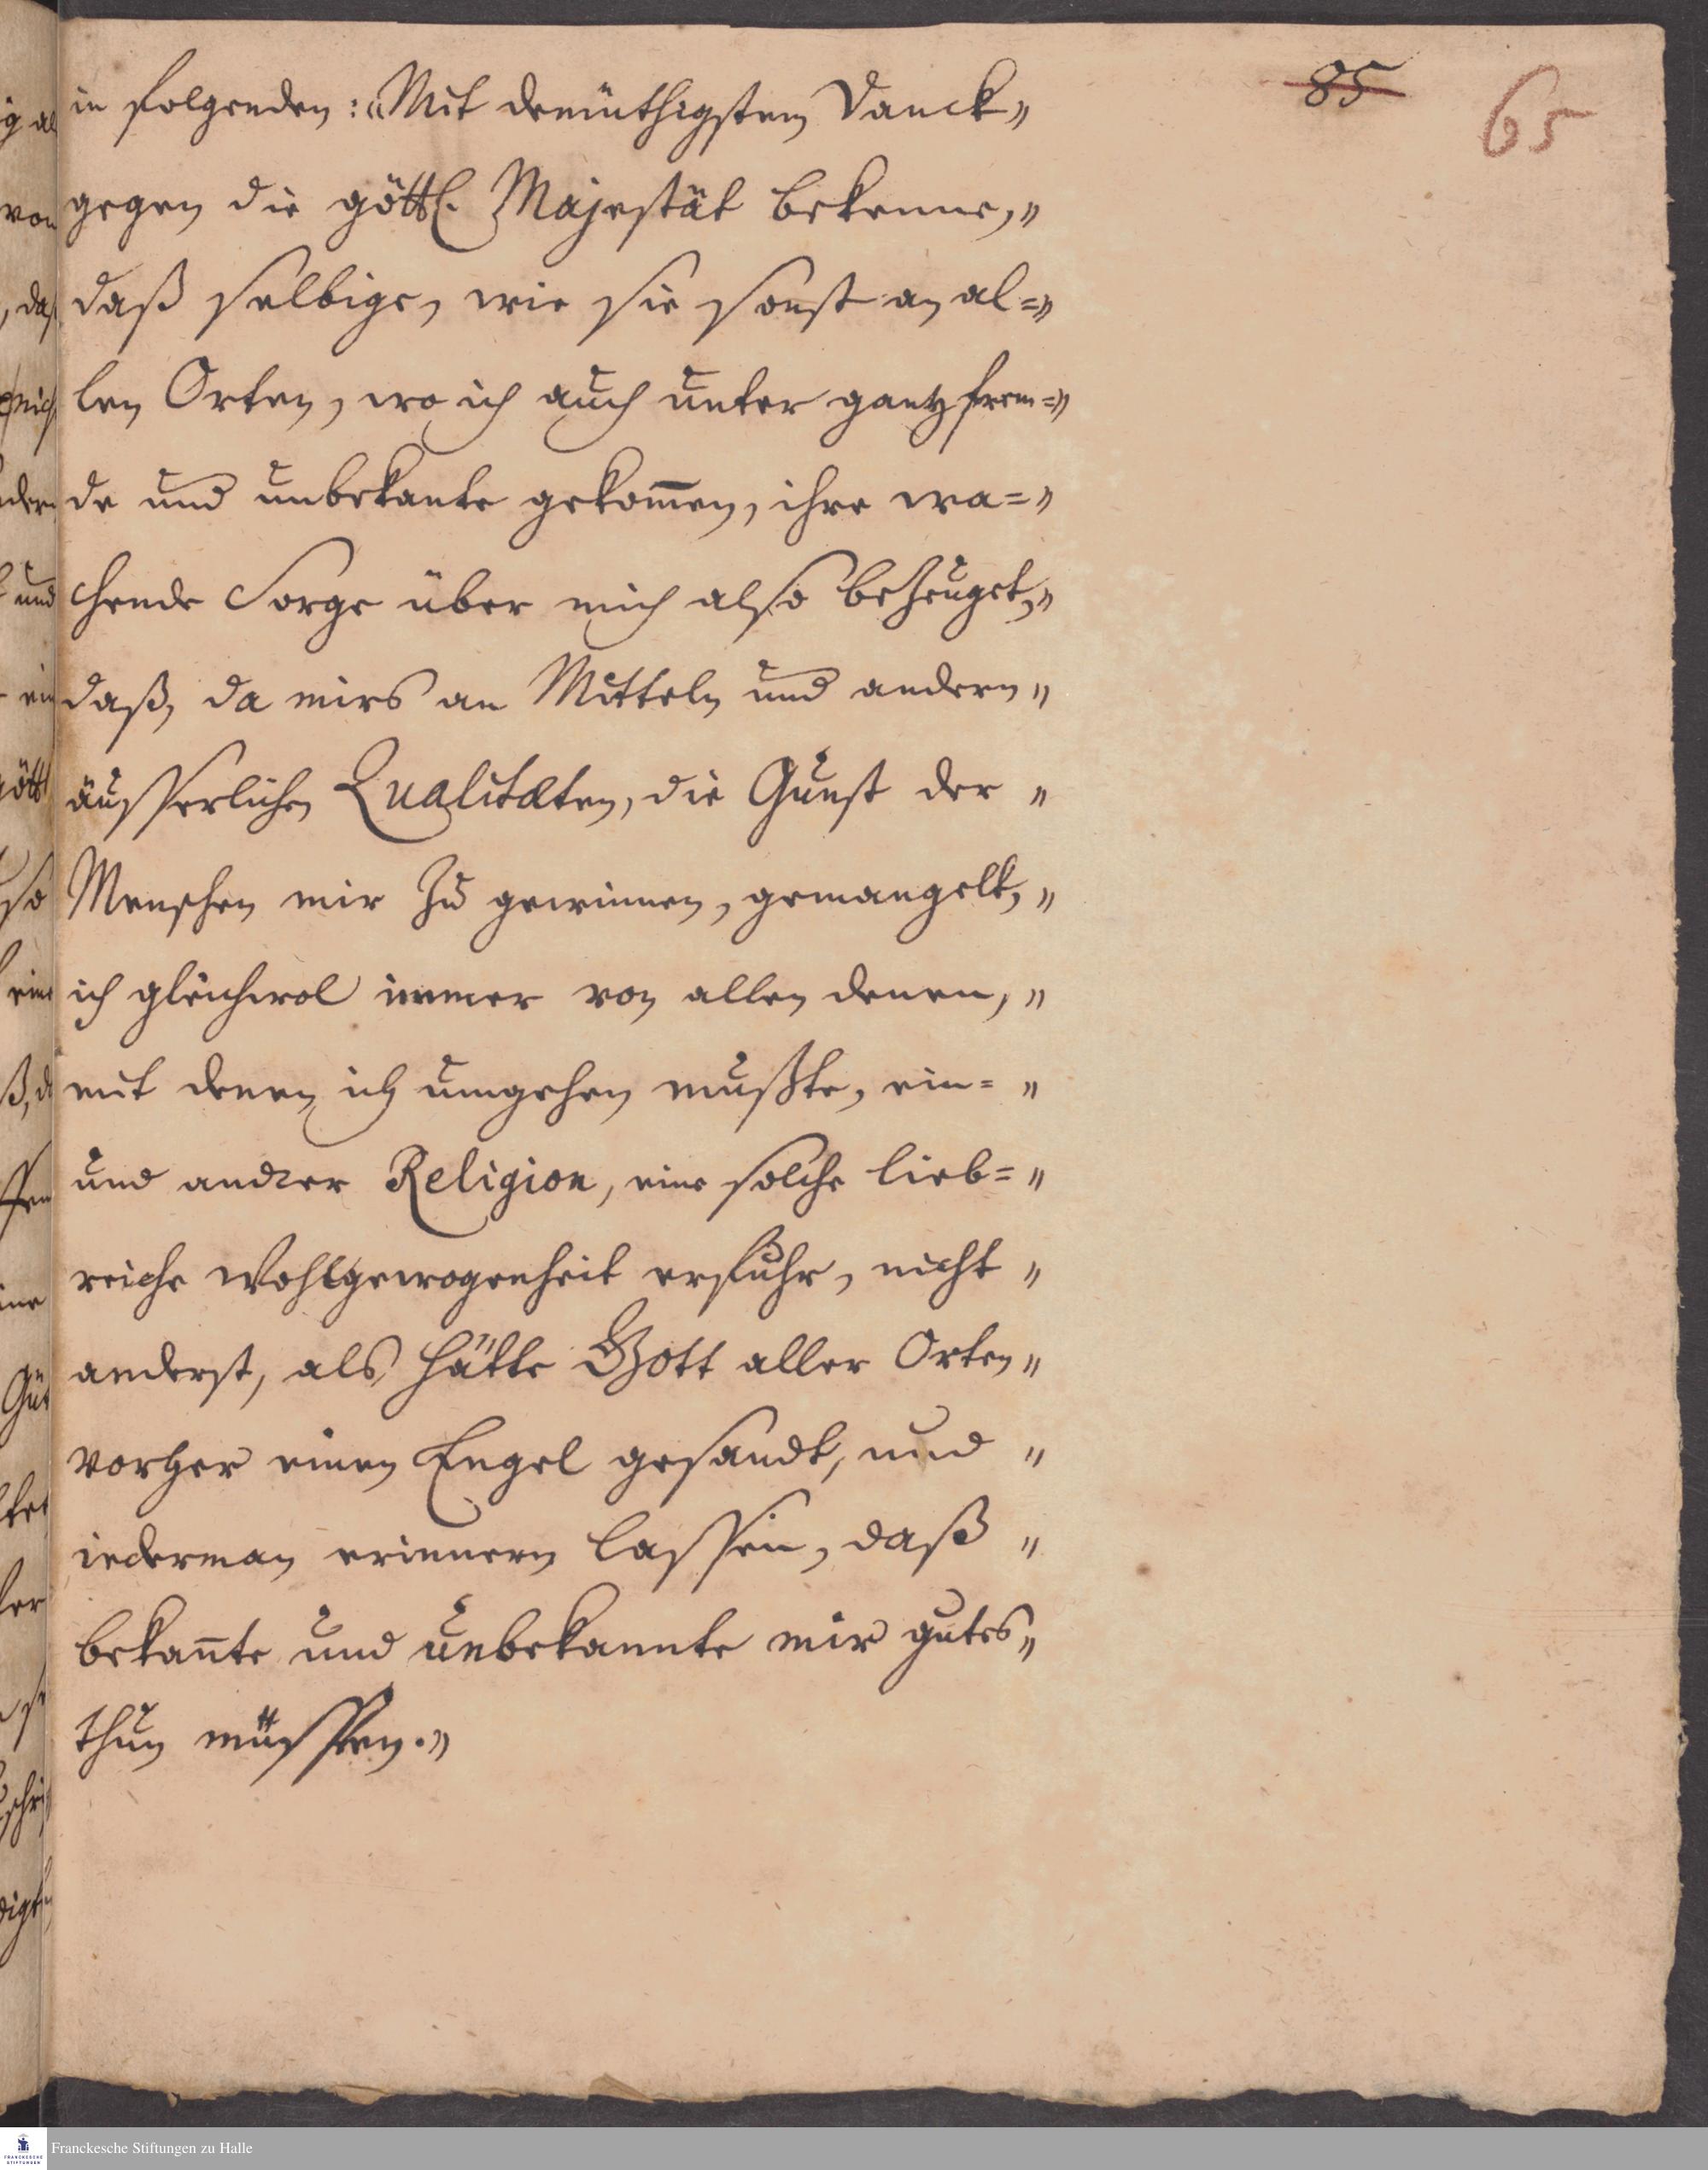 85
65
in folgenden: „Mit demüthigstem Danck„
gegen die göttl. Majestät bekenne,„
daß selbige, wie sie sonst an al=„
len Orten, wo ich auch unter gantz frem=„
de und unbekante gekom̄en, ihre wa=„
chende Sorge über mich also bezeuget,„
daß, da mirs an Mitteln und andern„
äusserlichen Qualitæten, die Gunst der „
Menschen mir zu gewinnen, gemangelt,„
ich gleichwol immer von allen denen,„
mit denen ich umgehen mußte, ein= „
und andrer Religion, eine solche lieb=„
reiche Wohlgewogenheit erfuhr, nicht „
anderst, als hätte Gott aller Orten„
vorher einen Engel gesandt, und „
iederman erinnern lassen, daß „
bekan̄te und unbekannte mir gutes„
thun müssen.„
Franckesche Stiftungen zu Halle